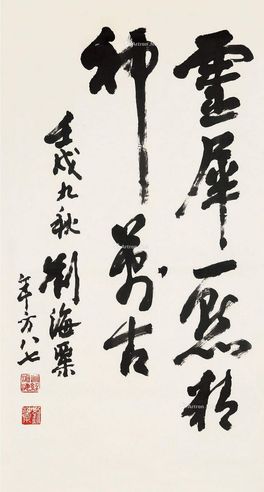 靈犀一點精
神萬古
壬戌九秋
劉海粟
年方八七